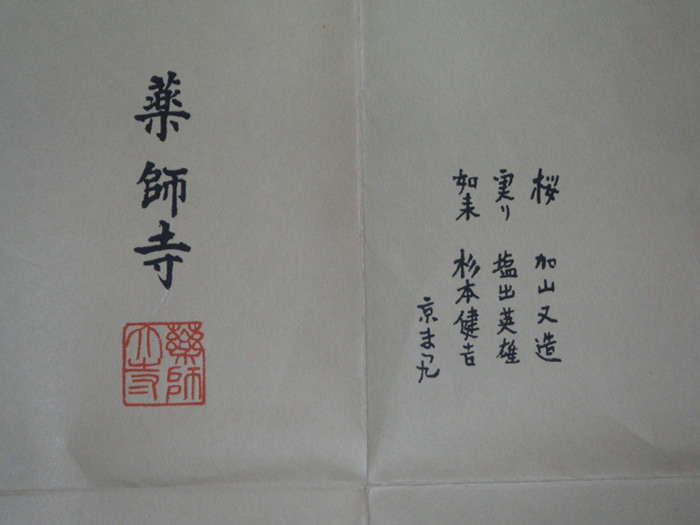 桜 加山又造
実り 塩出英雄
如来 杉本健吉
京まつ九
薬師寺
薬師
大寺